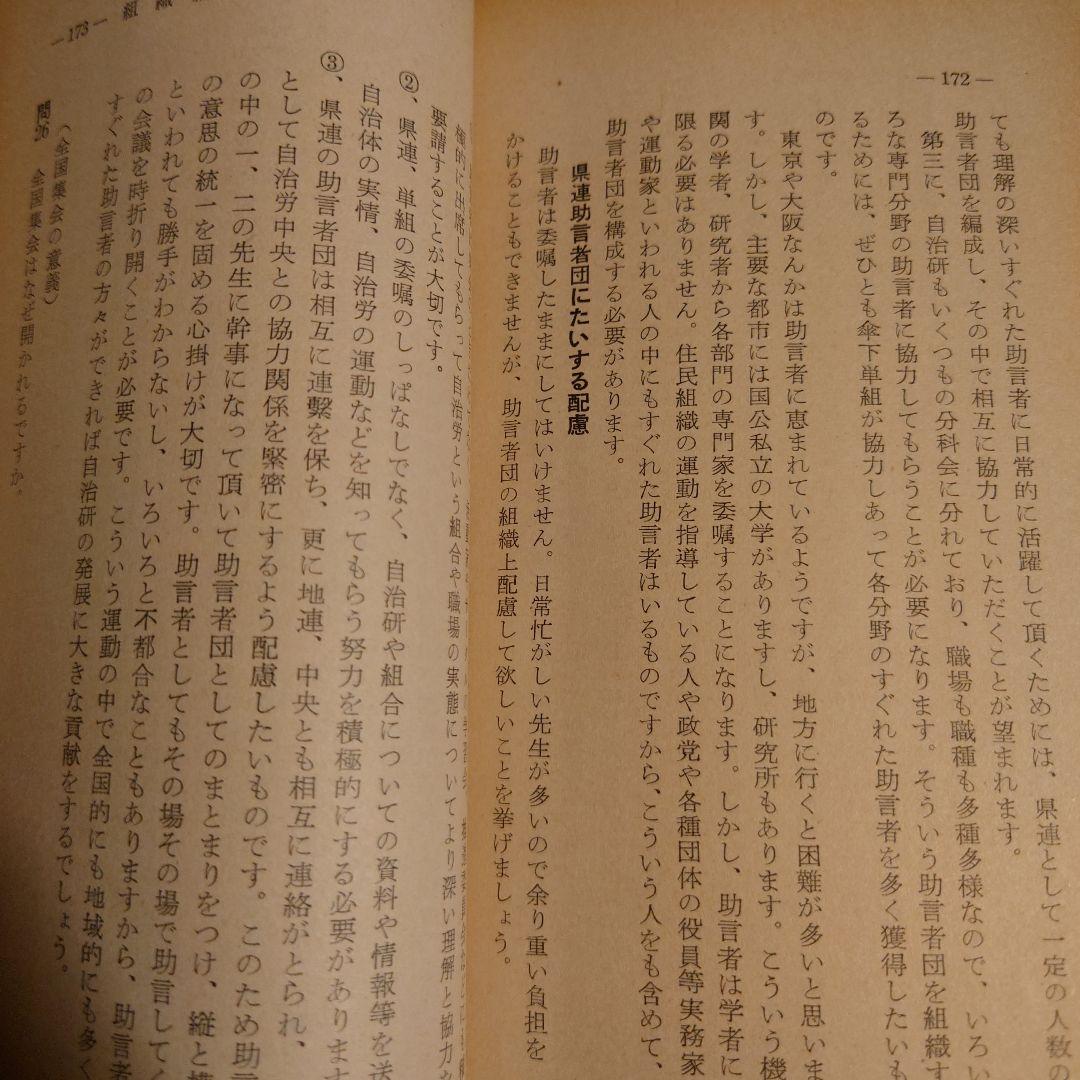 — 172 —
ても理解の深いすぐれた助言者に日常的に活躍して頂くためには、県連として一定の人数の
助言者団を編成し、その中で相互に協力していただくことが望まれます。
第三に、自治研もいくつもの分科会に分れており、職場も職種も多種多様なので、いろい
ろな専門分野の助言者に協力してもらうことが必要になります。そういう助言者団を組織す
るためには、ぜひとも傘下単組が協力しあって各分野のすぐれた助言者を多く獲得したいも
のです。
東京や大阪なんかは助言者に恵まれているようですが、地方に行くと困難が多いと思いま
す。しかし、主要な都市には国公私立の大学がありますし、研究所もあります。こういう機
関の学者、研究者から各部門の専門家を委嘱することになります。しかし、助言者は学者に
限る必要はありません。住民組織の運動を指導している人や政党や各種団体の役員等実務家
や運動家といわれる人の中にもすぐれた助言者はいるものですから、こういう人をも含めて、
助言者団を構成する必要があります。
県連助言者団にたいする配慮
助言者は委嘱したままにしてはいけません。日常忙がしい先生が多いので余り重い負担を
かけることもできませんが、助言者団の組織上配慮して欲しいことを挙げましょう。
— 173 —
組織
極的に出席してもらって自治労という組合や職場の実態についてより深い理解と協力を
要請することが大切です。
②、県連、単組の委嘱のしっぱなしでなく、自治研や組合についての資料や情報等を送
自治体の実情、自治労の運動などを知ってもらう努力を積極的にする必要があります
③、県連の助言者団は相互に連繋を保ち、更に地連、中央とも相互に連絡がとられ、
として自治労中央との協力関係を緊密にするよう配慮したいものです。このため助
の中の一、二の先生に幹事になって頂いて助言者団としてのまとまりをつけ、縦と横
の意思の統一を固める心掛けが大切です。助言者としてもその場その場で助言して
といわれても勝手がわからないし、いろいろと不都合なこともありますから、助言者
の会議を時折り開くことが必要です。こういう運動の中で全国的にも地域的にも多く
すぐれた助言者の方々ができれば自治研の発展に大きな貢献をするでしょう。
(全国集会の意義)
問26 全国集会はなぜ開かれるですか。